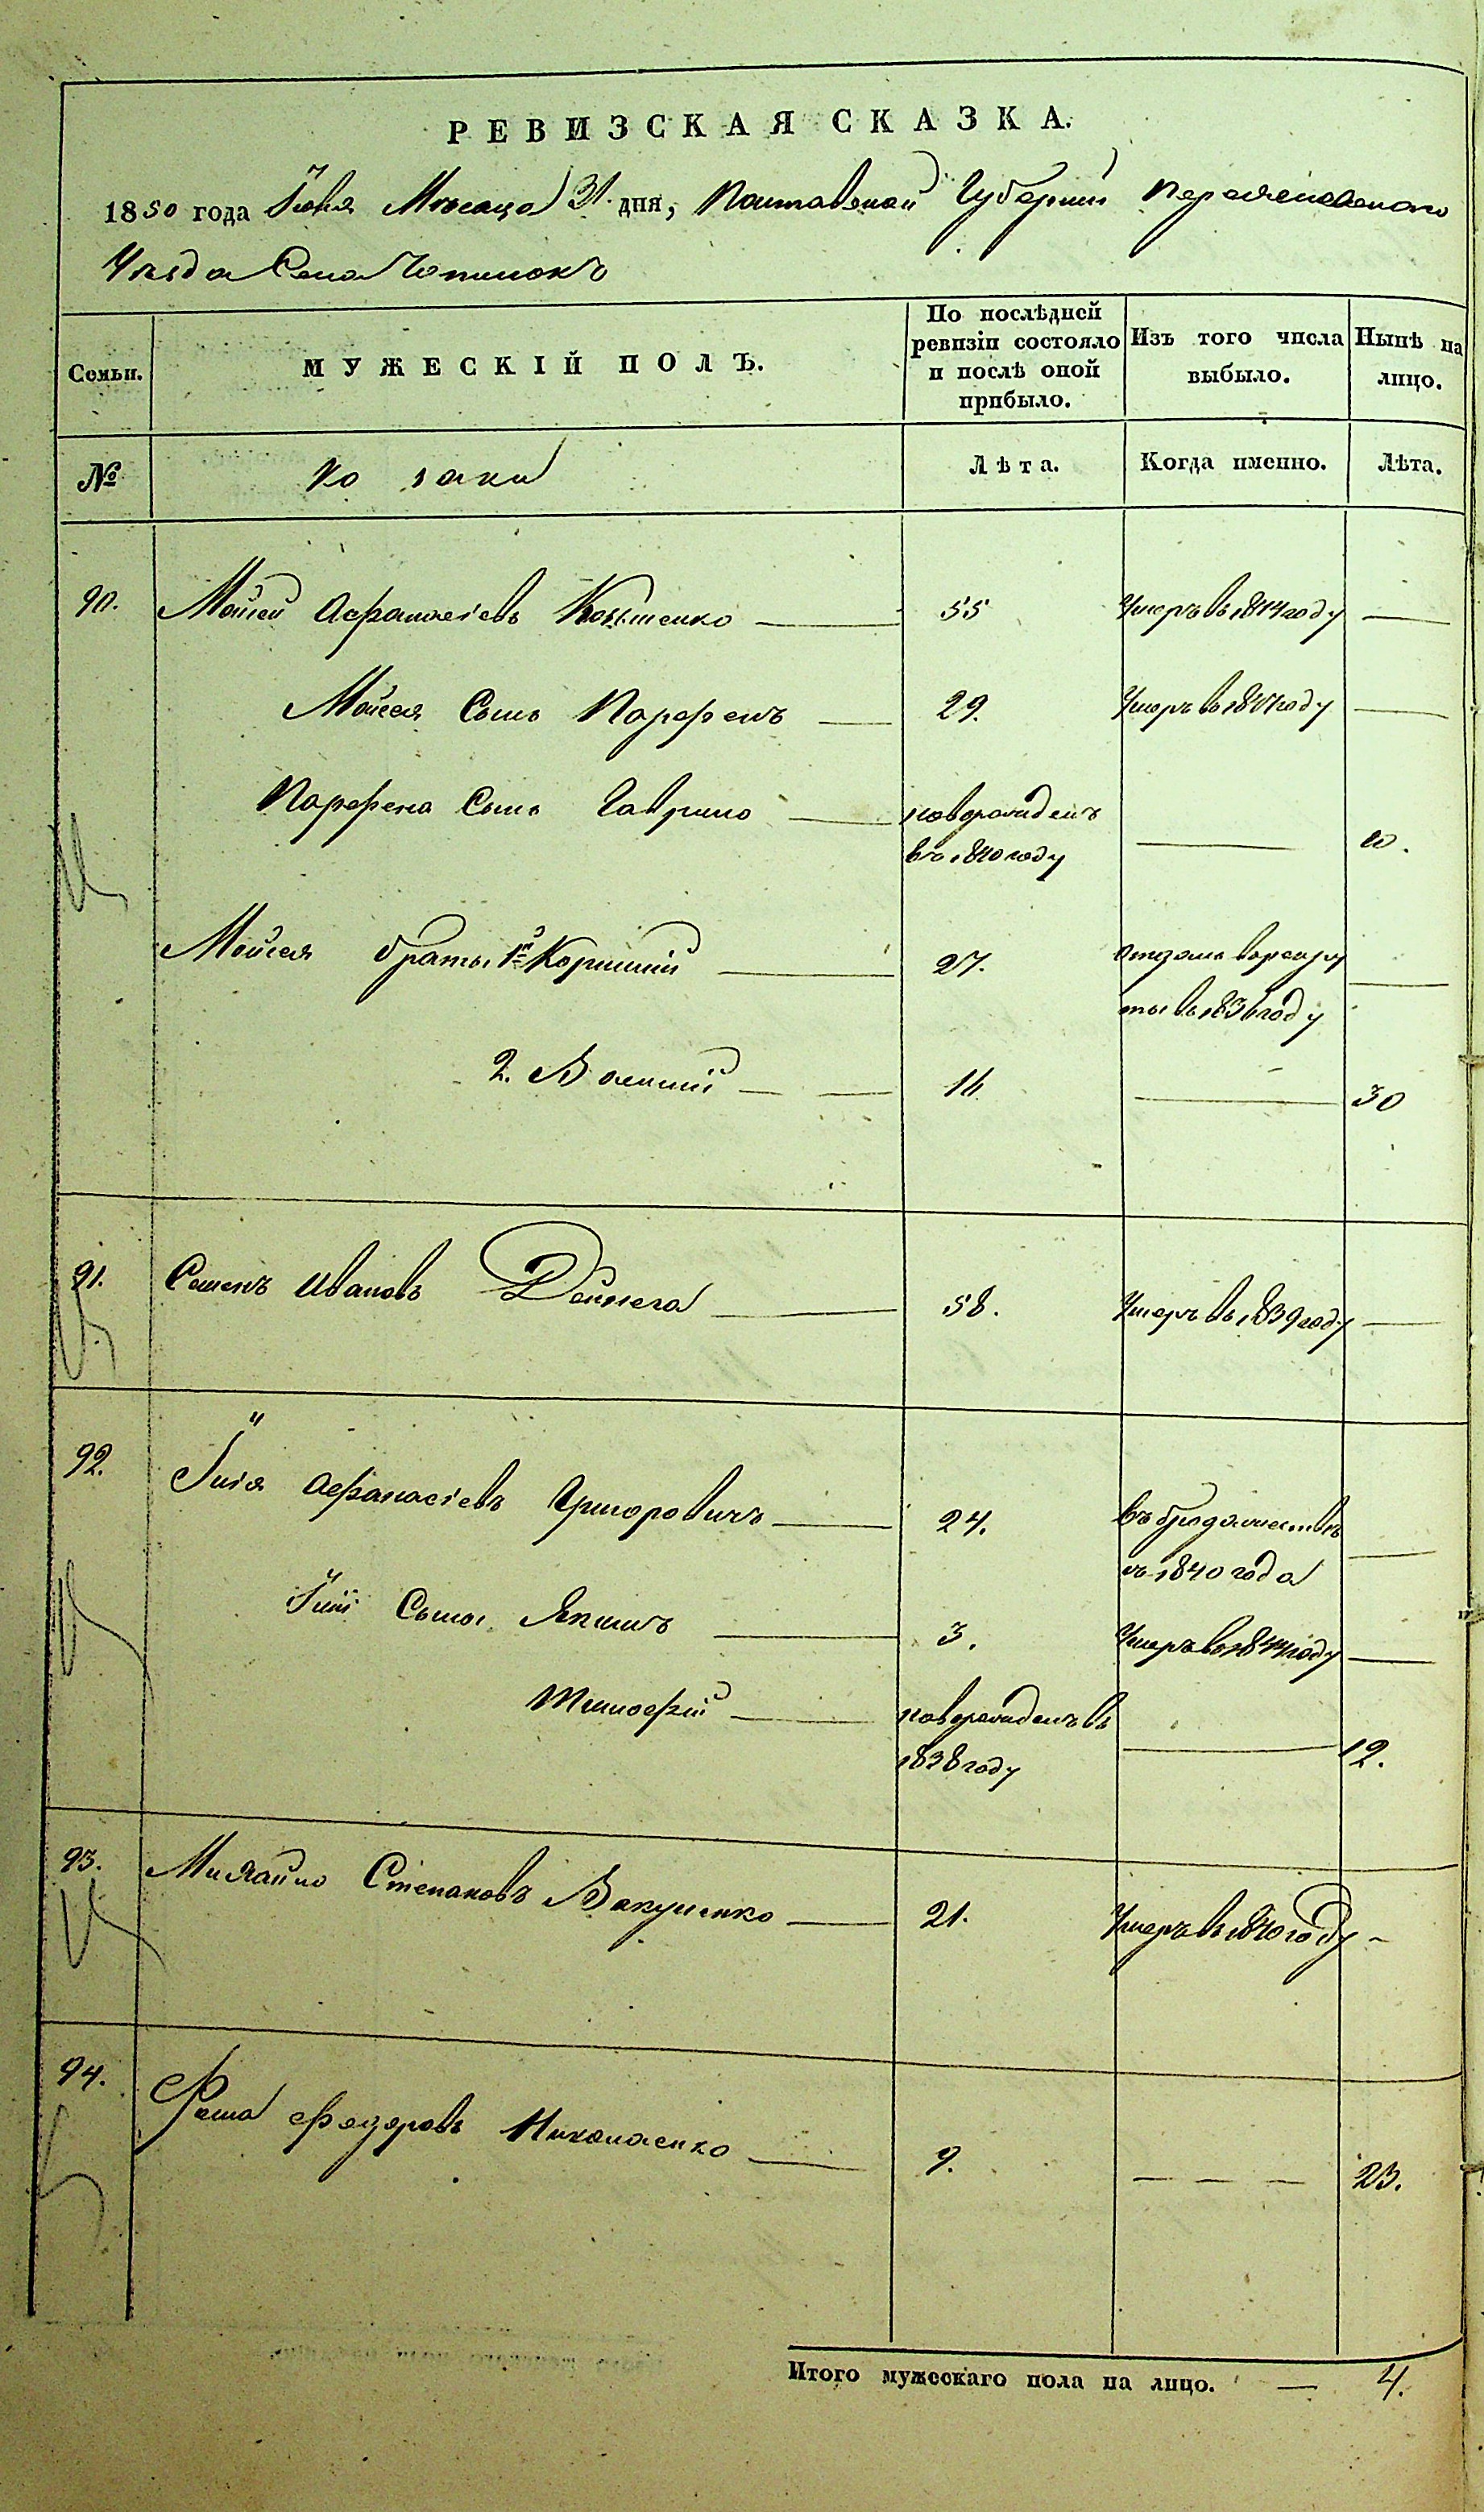 РЕВИЗСКАЯ СКАЗКА.
1850 года Іюля Мѣсяца 31. дня, Полтавской Губерніи Переяславскаго
Уѣзда Села Чопилокъ
Семьи. МУЖЕСКІЙ ПОЛЪ. По послѣдней ревизіи состояло и послѣ оной прибыло. Изъ того числа выбыло. Нынѣ на лицо.
№ Козаки Лѣта. Когда именно. Лѣта.
90. Мойсей Афанасіевъ 55 Умеръ въ 1844 году —
Мойсея Сынъ Парфенъ — 29. Умеръ въ году —
Парфена Сынъ Гаврило — новорожденъ
въ 1840 году — 10.
Мойсея братья 1й Корнилій — 27. отданъ въ рекру
ты въ 1836 году —
2. Василій — 14 — 30
91. Семенъ Ивановъ Дейнега — 58. Умеръ въ 1839 году —
92. Илія Афанасіевъ Григоровичъ — 24. въ бродяжествѣ
съ 1840 года —
Иліи Сыны Якимъ — 3. Умеръ въ 1844 году —
Тимофей — новорожденъ въ
1838 году — 12.
93. Михайло Степановъ Вакуленко — 21. Умеръ въ 1840 году -
94. Фома Федоровъ Николаенко — 9. — — — 23.
Итого мужескаго пола на лицо. — 4.